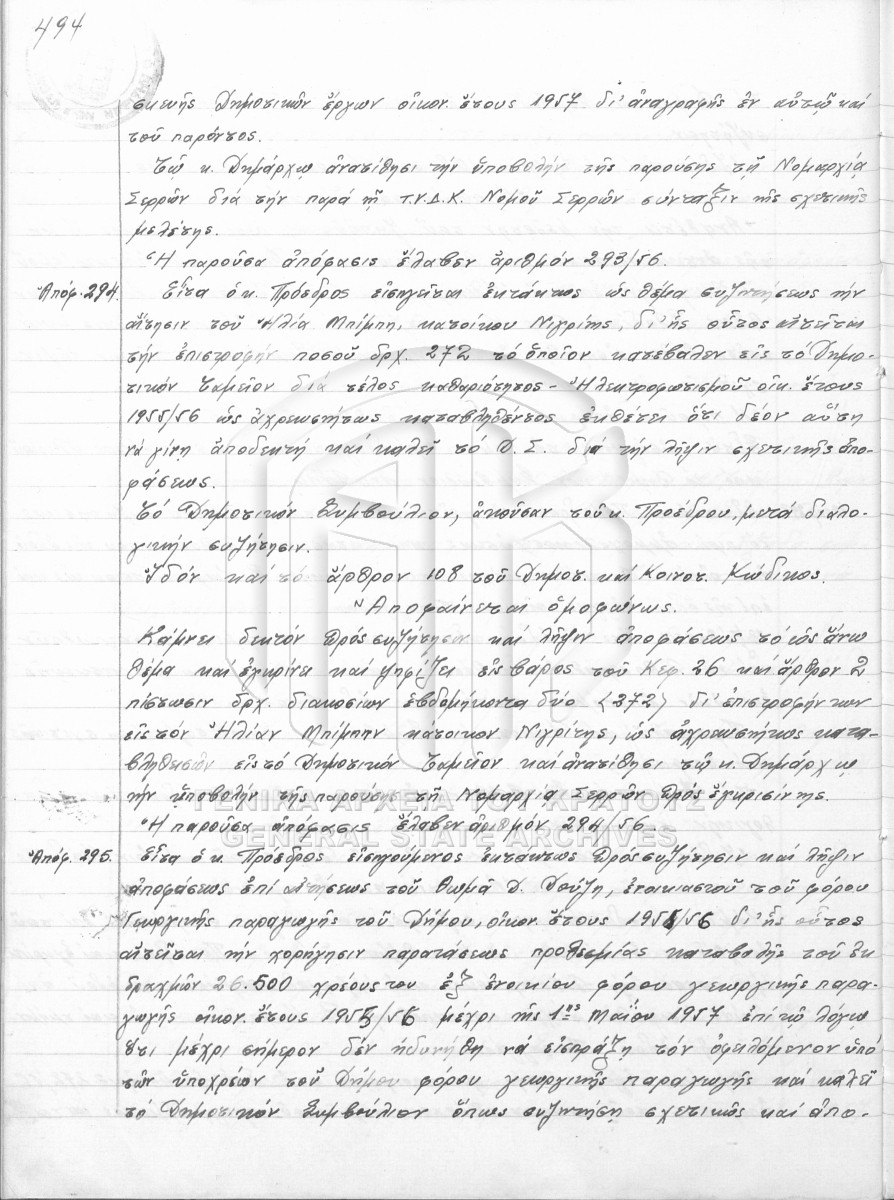 494
σκευῆς Δημοτικῶν ἔργων οἰκον. ἔτους 1957 δι' ἀναγραφῆς ἐν αὐτῷ καὶ
τοῦ παρόντος.
Τῷ κ. Δημάρχῳ ἀνατίθησι τήν ὑποβολήν τῆς παρούσης τῇ Νομαρχίᾳ
Σερρῶν διά τήν παρά τῇ Τ.Υ.Δ.Κ. Νομοῦ Σερρῶν σύνταξιν τῆς σχετικῆς
μελέτης.
Ἡ παροῦσα ἀπόφασις ἔλαβεν ἀριθμόν 293/56.
Ἀπόφ. 294. Εἶτα ὁ κ. Πρόεδρος εἰσηγεῖται ἐκτάκτως ὡς θέμα συζητήσεως τήν
αἴτησιν τοῦ Ἠλία Μπίμπη, κατοίκου Νιγρίτης, δι' ἧς οὗτος αἰτεῖται
τήν ἐπιστροφήν ποσοῦ δρχ. 272 τό ὁποῖον κατέβαλεν εἰς τό Δημο-
τικόν Ταμεῖον διά τέλος καθαριότητος - Ἠλεκτροφωτισμοῦ οἰκ. ἔτους
1955/56 ὡς ἀχρεωστήτως καταβληθέντος ἐκθέτει ὅτι δέον αὕτη
νά γίνῃ ἀποδεκτή καί καλεῖ τό Δ. Σ. διά τήν λῆψιν σχετικῆς ἀπο-
φάσεως.
Τό Δημοτικόν Συμβούλιον, ἀκοῦσαν τοῦ κ. Προέδρου, μετά διαλο-
γικήν συζήτησιν.
Ἰδόν καί τό ἄρθρον 108 τοῦ Δημοτ. καί Κοινοτ. Κώδικος.
Ἀποφαίνεται ὁμοφώνως.
Κάμνει δεκτόν πρός συζήτησιν καί λῆψιν ἀποφάσεως τό ὡς ἄνω
θέμα καί ἐγκρίνει καί ψηφίζει εἰς βάρος τοῦ Κεφ. 26 καί ἄρθρον 2
πίστωσιν δρχ. διακοσίων ἑβδομήκοντα δύο (272) δι' ἐπιστροφήν των
εἰς τόν Ἠλίαν Μπίμπην κάτοικον Νιγρίτης, ὡς ἀχρεωστήτως κατα-
βληθεισῶν εἰς τό Δημοτικόν Ταμεῖον καί ἀνατίθησι τῷ κ. Δημάρχῳ
τήν ὑποβολήν τῆς παρούσης τῇ Νομαρχίᾳ Σερρῶν πρός ἔγκρισίν της.
ΓΕΝΙΚΑ ΑΡΧΕΙΑ ΤΟΥ ΚΡΑΤΟΥΣ
Ἡ παροῦσα ἀπόφασις ἔλαβεν ἀριθμόν 294/56.
GENERAL STATE ARCHIVES
Ἀπόφ. 295. Εἶτα ὁ κ. Πρόεδρος εἰσηγούμενος ἐκτάκτως πρός συζήτησιν καί λῆψιν
ἀποφάσεως ἐπί αἰτήσεως τοῦ Θωμᾶ Δ. Δούζη, ἐνοικιαστοῦ τοῦ φόρου
Γεωργικῆς παραγωγῆς τοῦ Δήμου, οἰκον. ἔτους 1955/56 δι' ἧς οὗτος
αἰτεῖται τήν χορήγησιν παρατάσεως προθεσμίας καταβολῆς τοῦ ἐκ
δραχμῶν 26.500 χρέους του ἐξ ἐνοικίου φόρου γεωργικῆς παρα-
γωγῆς οἰκον. ἔτους 1955/56 μέχρι τῆς 1ης Μαΐου 1957 ἐπί τῷ λόγῳ
ὅτι μέχρι σήμερον δέν ἠδυνήθη νά εἰσπράξῃ τόν ὀφειλόμενον ὑπό
τῶν ὑποχρέων τοῦ Δήμου φόρου γεωργικῆς παραγωγῆς καί καλεῖ
τό Δημοτικόν Συμβούλιον ὅπως συζητήσῃ σχετικῶς καί ἀπο-